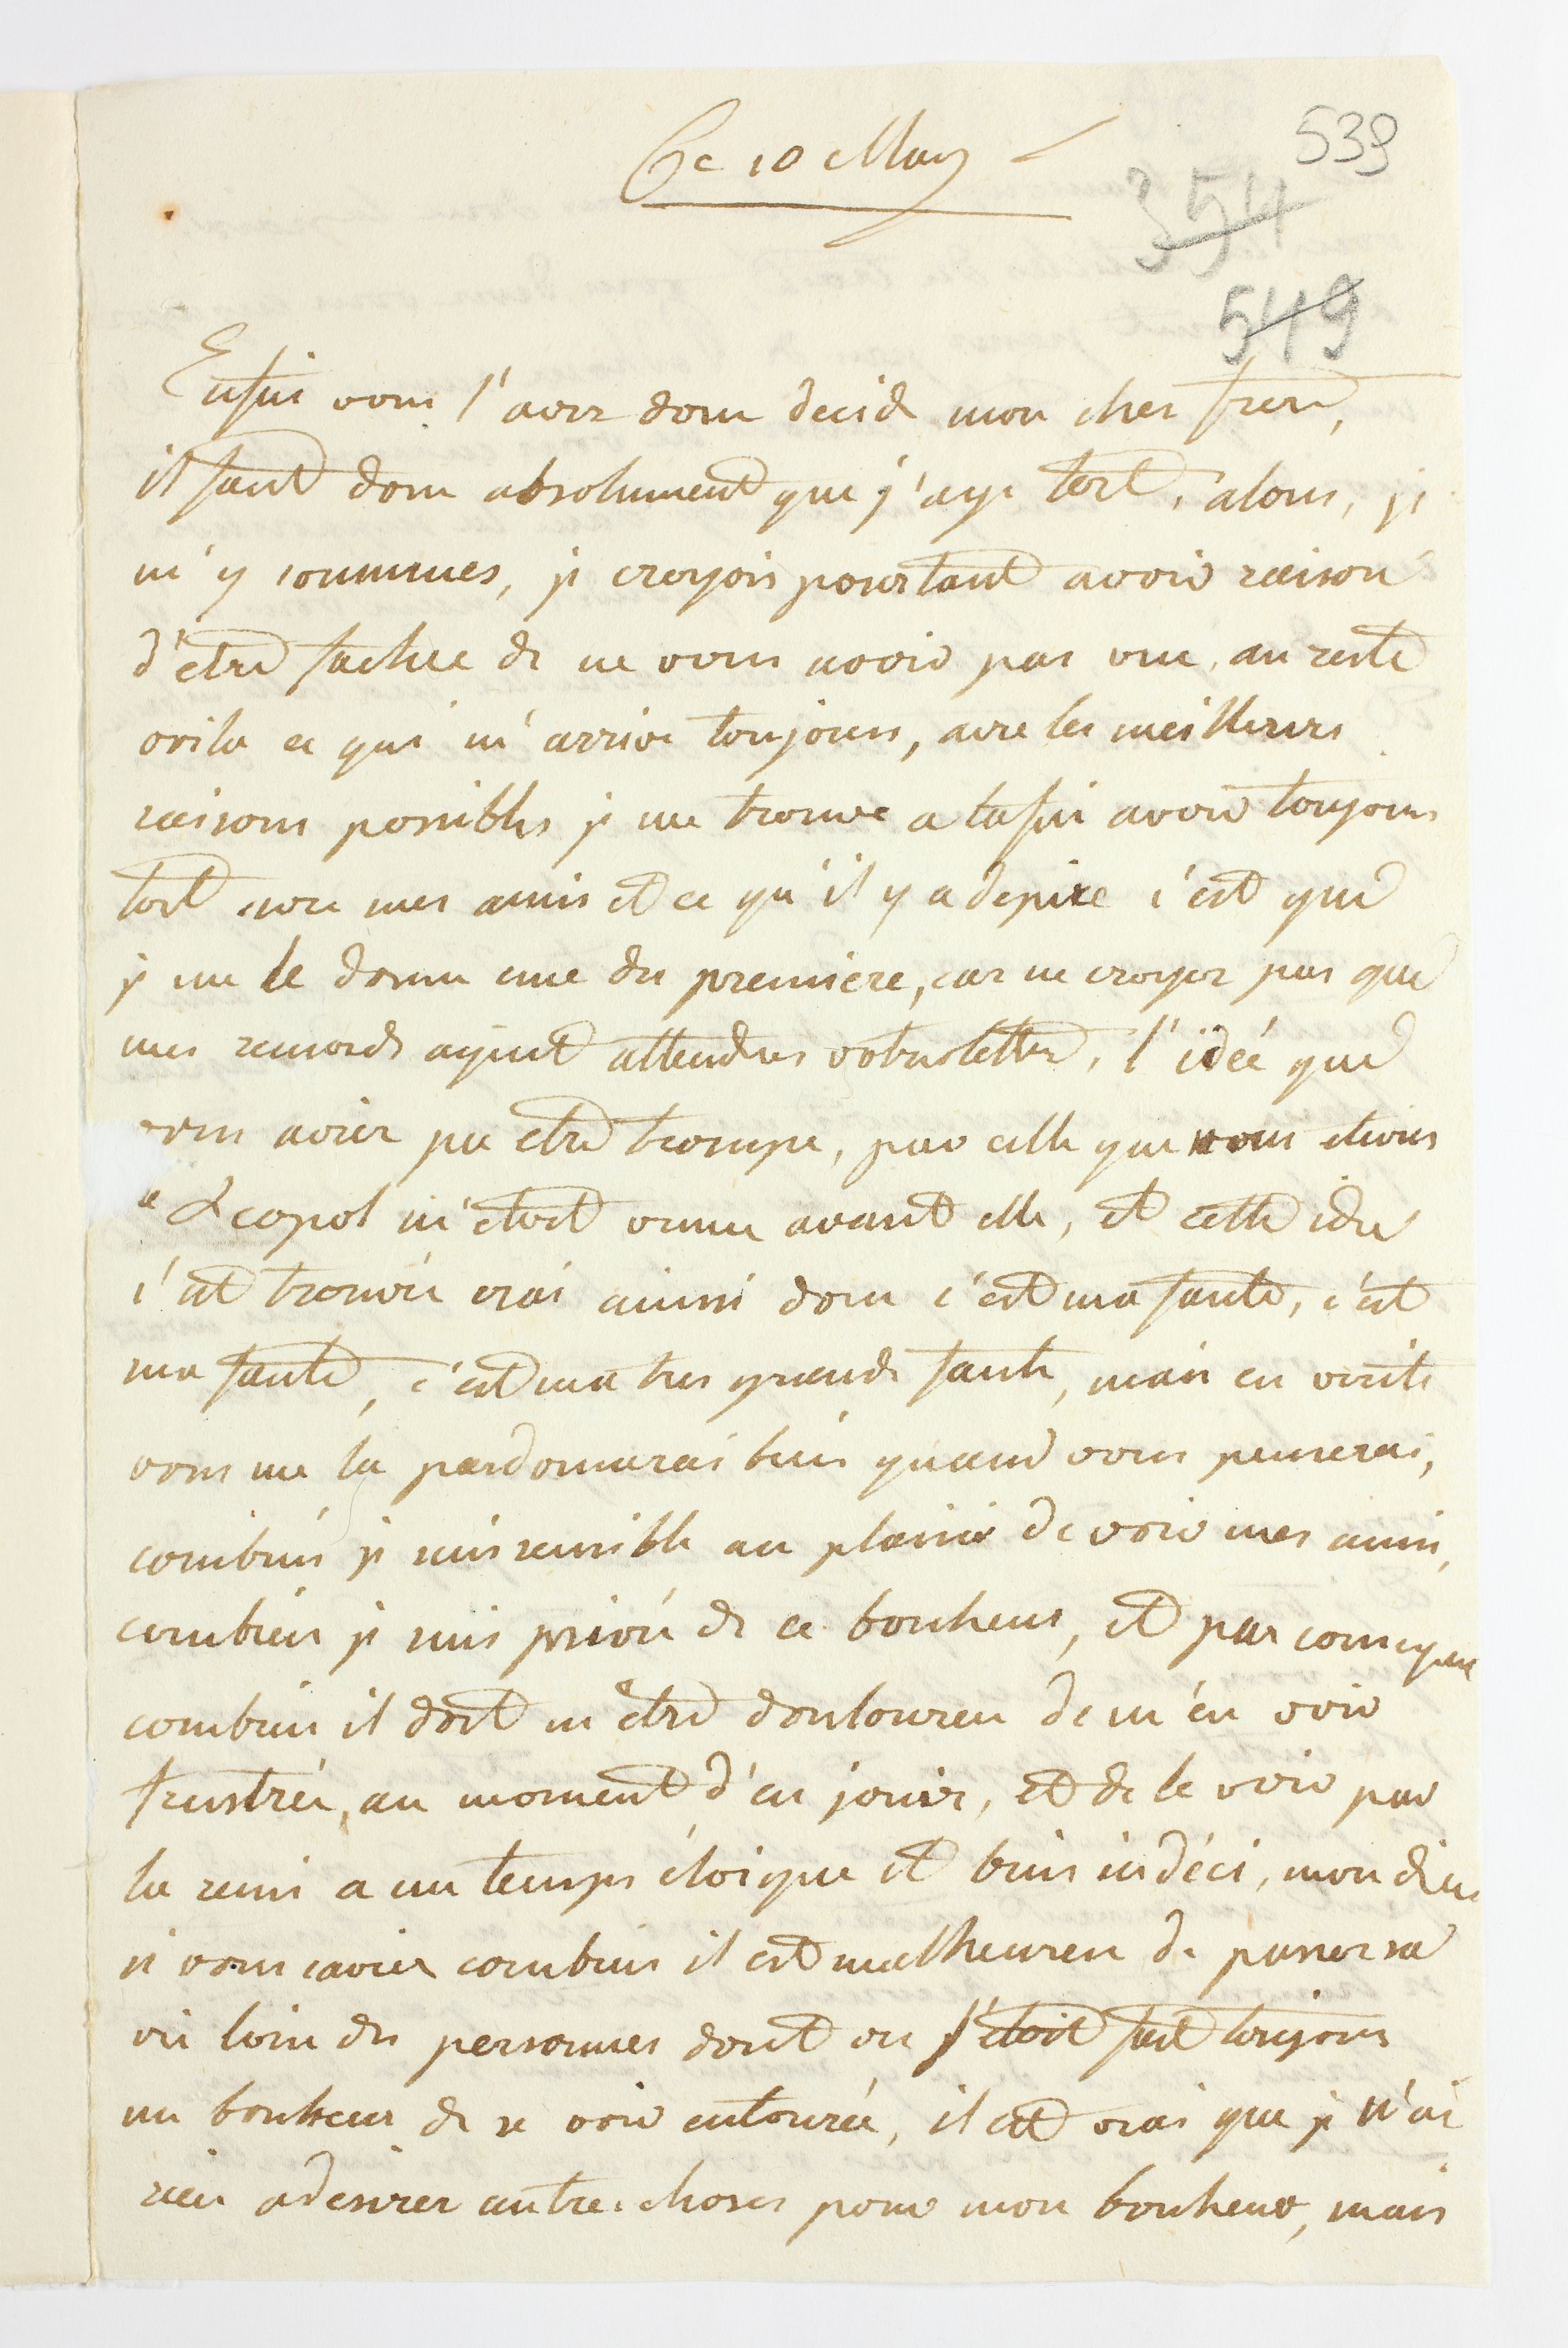 Ce 10 May
539
354
549
Enfin vous l'avez donc decidé mon cher frere,
il faut donc absolument que j'aye tort, alons, je
m'y soummes, je croyois pourtant avoir raison
d'être fachee de ne vous avoir pas vue, au reste
voila ce qui m'arrive toujours, avec les meilleurs
raisons possibles je me trouve a la fin avoir toujours
tort avec mes amis et ce qu'il y a de pire c'est que
je me le donne une des premiere, car ne croyez pas que
mes remords ayent attendus votre lettre, l'idéé que
vous aviez pu etre trompe, par celle que nous etions
a Leopol m'etoit venue avant elle, et cette idee
s'est trouvée vrai ainsi donc c'est ma faute, c'est
ma faute, c'est ma tres grande faute, mais en verité
vous me la pardonnerai bien quand vous penserai,
combien je suis sensible au plaisir de voir mes amis,
combien je suis privée de ce bonheur, et par consequent
combien il doit m'être douloureu de m'en voir
frustrée, au moment d'en jouir, et de le voir par
la remi a un temps éloigne et bien indéci, mon dieu
si vous saviez combien il est malheureu de passer sa
vie loin des personnes dont on s'étoit fait toujours
un bonheur de se voir entourée, il est vrai que je n'ai
rien a desirer autre choses pour mon bonheur, mais